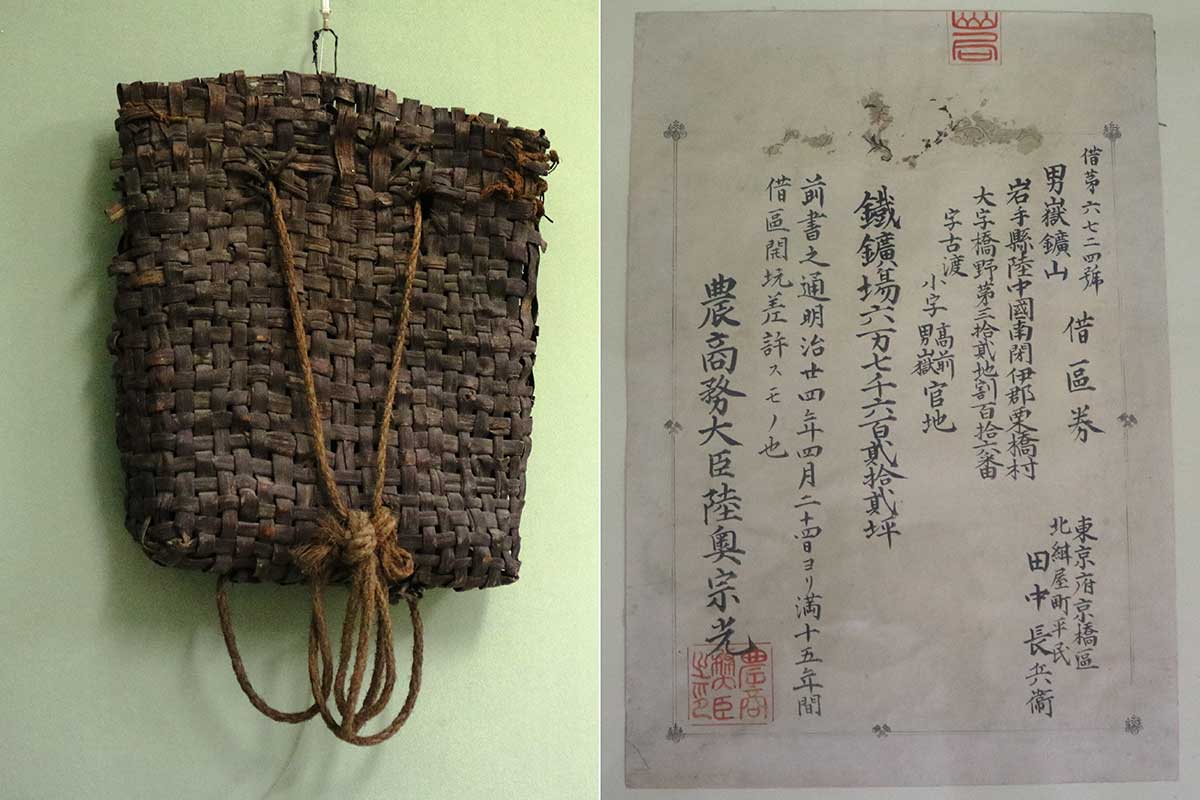 借第六七二四號
借區券
男嶽鑛山
岩手縣陸中國南閉伊郡栗橋村
大字橋野第三拾貳地割百拾六番
字古渡
小字 高前
男嶽
官地
東京府京橋區
北紺屋町平民
田中長兵衞
鐵鑛場六万七千六百貳拾貳坪
前書之通明治廿四年四月二十四日ヨリ満十五年間
借區開坑差許スモノ也
農商務大臣陸奥宗光
農商
務大臣
之印